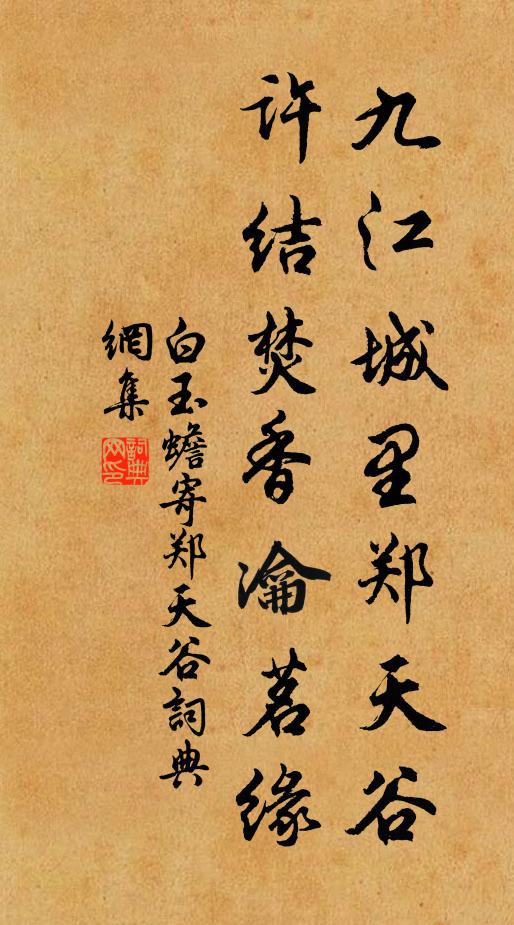 九江城里郑天谷
许结焚香瀹茗缘
白玉蟾寄郑天谷詞典
網集
詞典网印